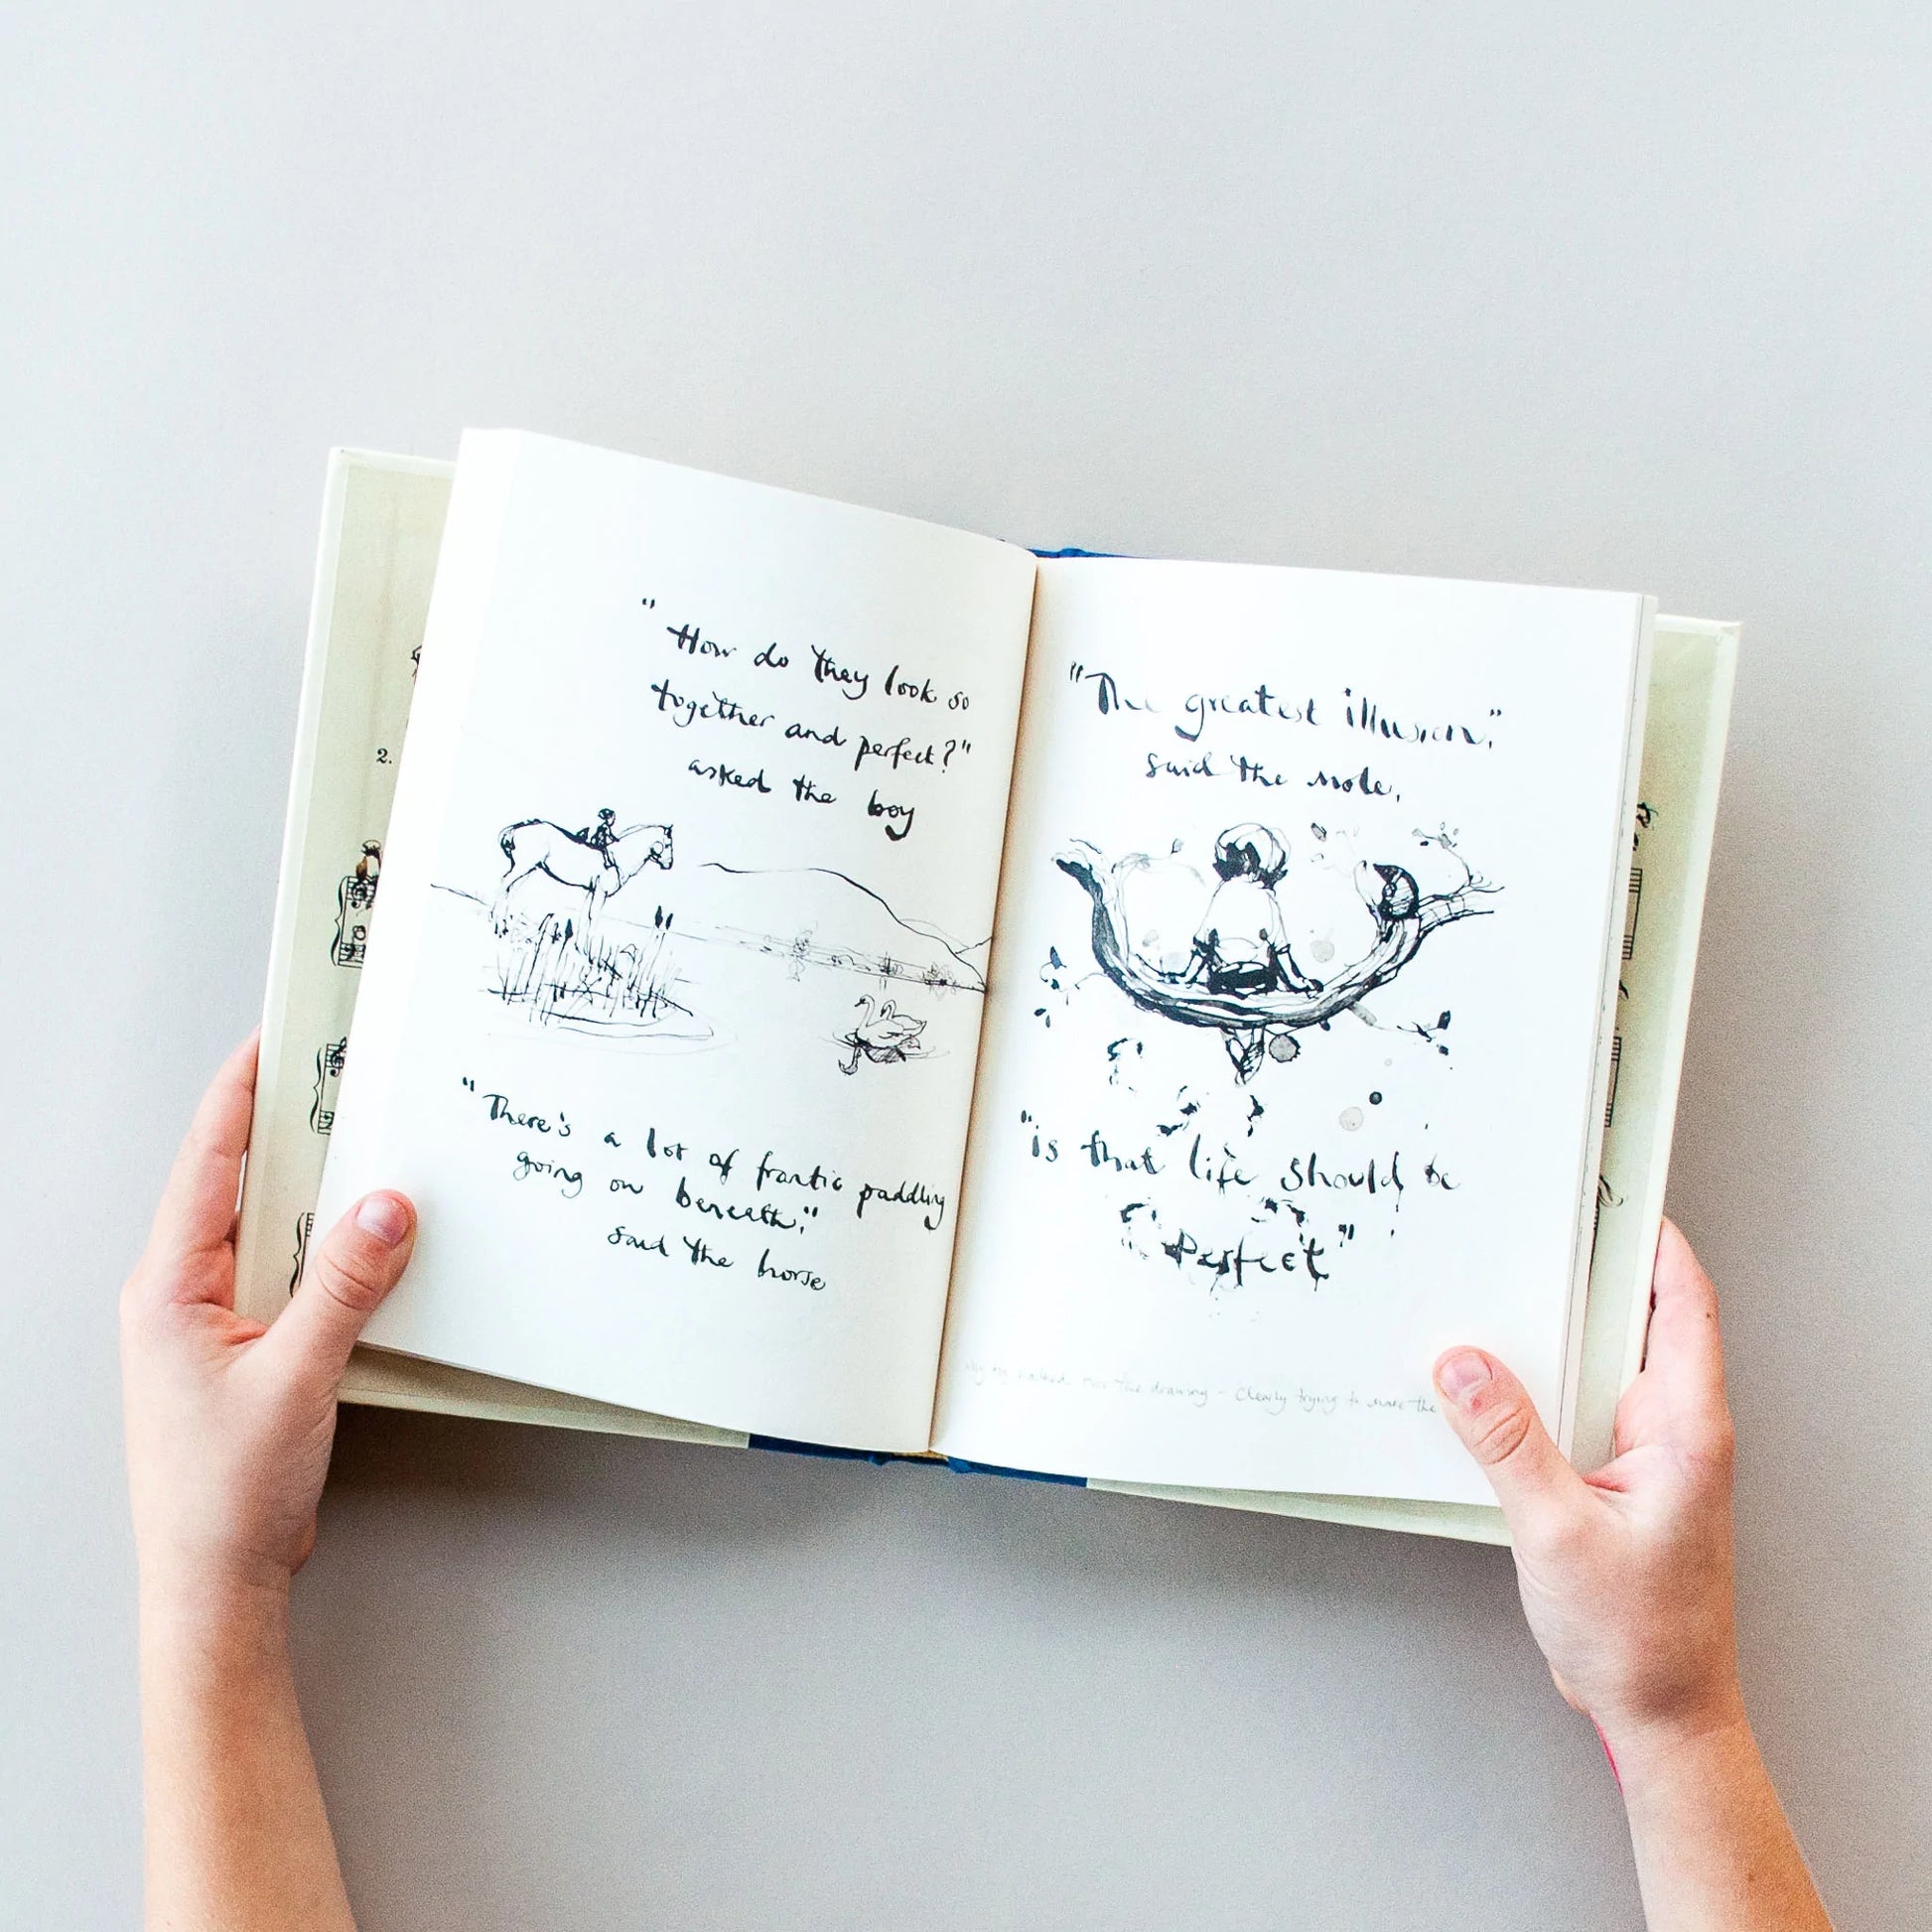 "How do they look so
together and perfect?"
asked the boy
"There's a lot of frantic paddling
going on beneath,"
said the horse
"The greatest illusion,"
said the mole,
"is that life should be
Perfect"
walked over the drawing - clearly trying to make the
2.